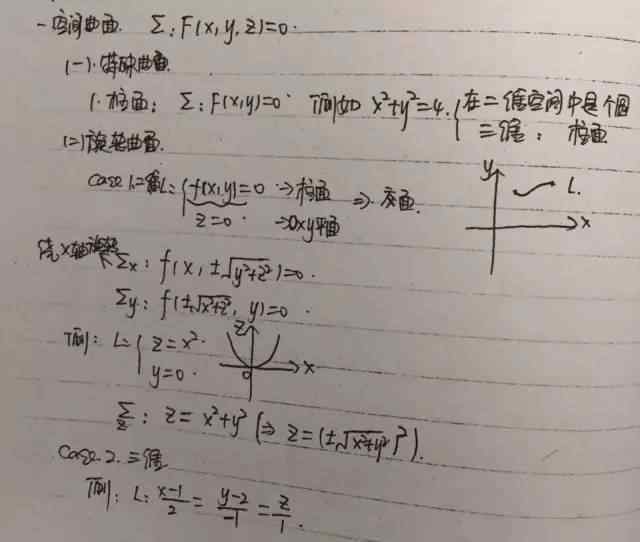 一空间曲面. Σ: F(x, y, z)=0.
(一).特殊曲面.
1. 柱面: Σ: F(x,y)=0. 例如 x²+y²=4. { 在二维空间中是个圆
三维: 柱面
(二)旋转曲面.
Case 1.二维L: { f(x,y)=0 → 柱面 ⇒ 交面.
z=0. → Oxy平面
y L. x
绕x轴旋转 Σx: f(x, ±√(y²+z²))=0.
Σy: f(±√(x²+z²), y)=0.
例: L: { z=x².
y=0.
z 0 x
Σz: z=x²+y² (⇒ z=(±√(x²+y²))²).
Case 2. 三维
例: L: (x-1)/2 = (y-2)/-1 = z/1.